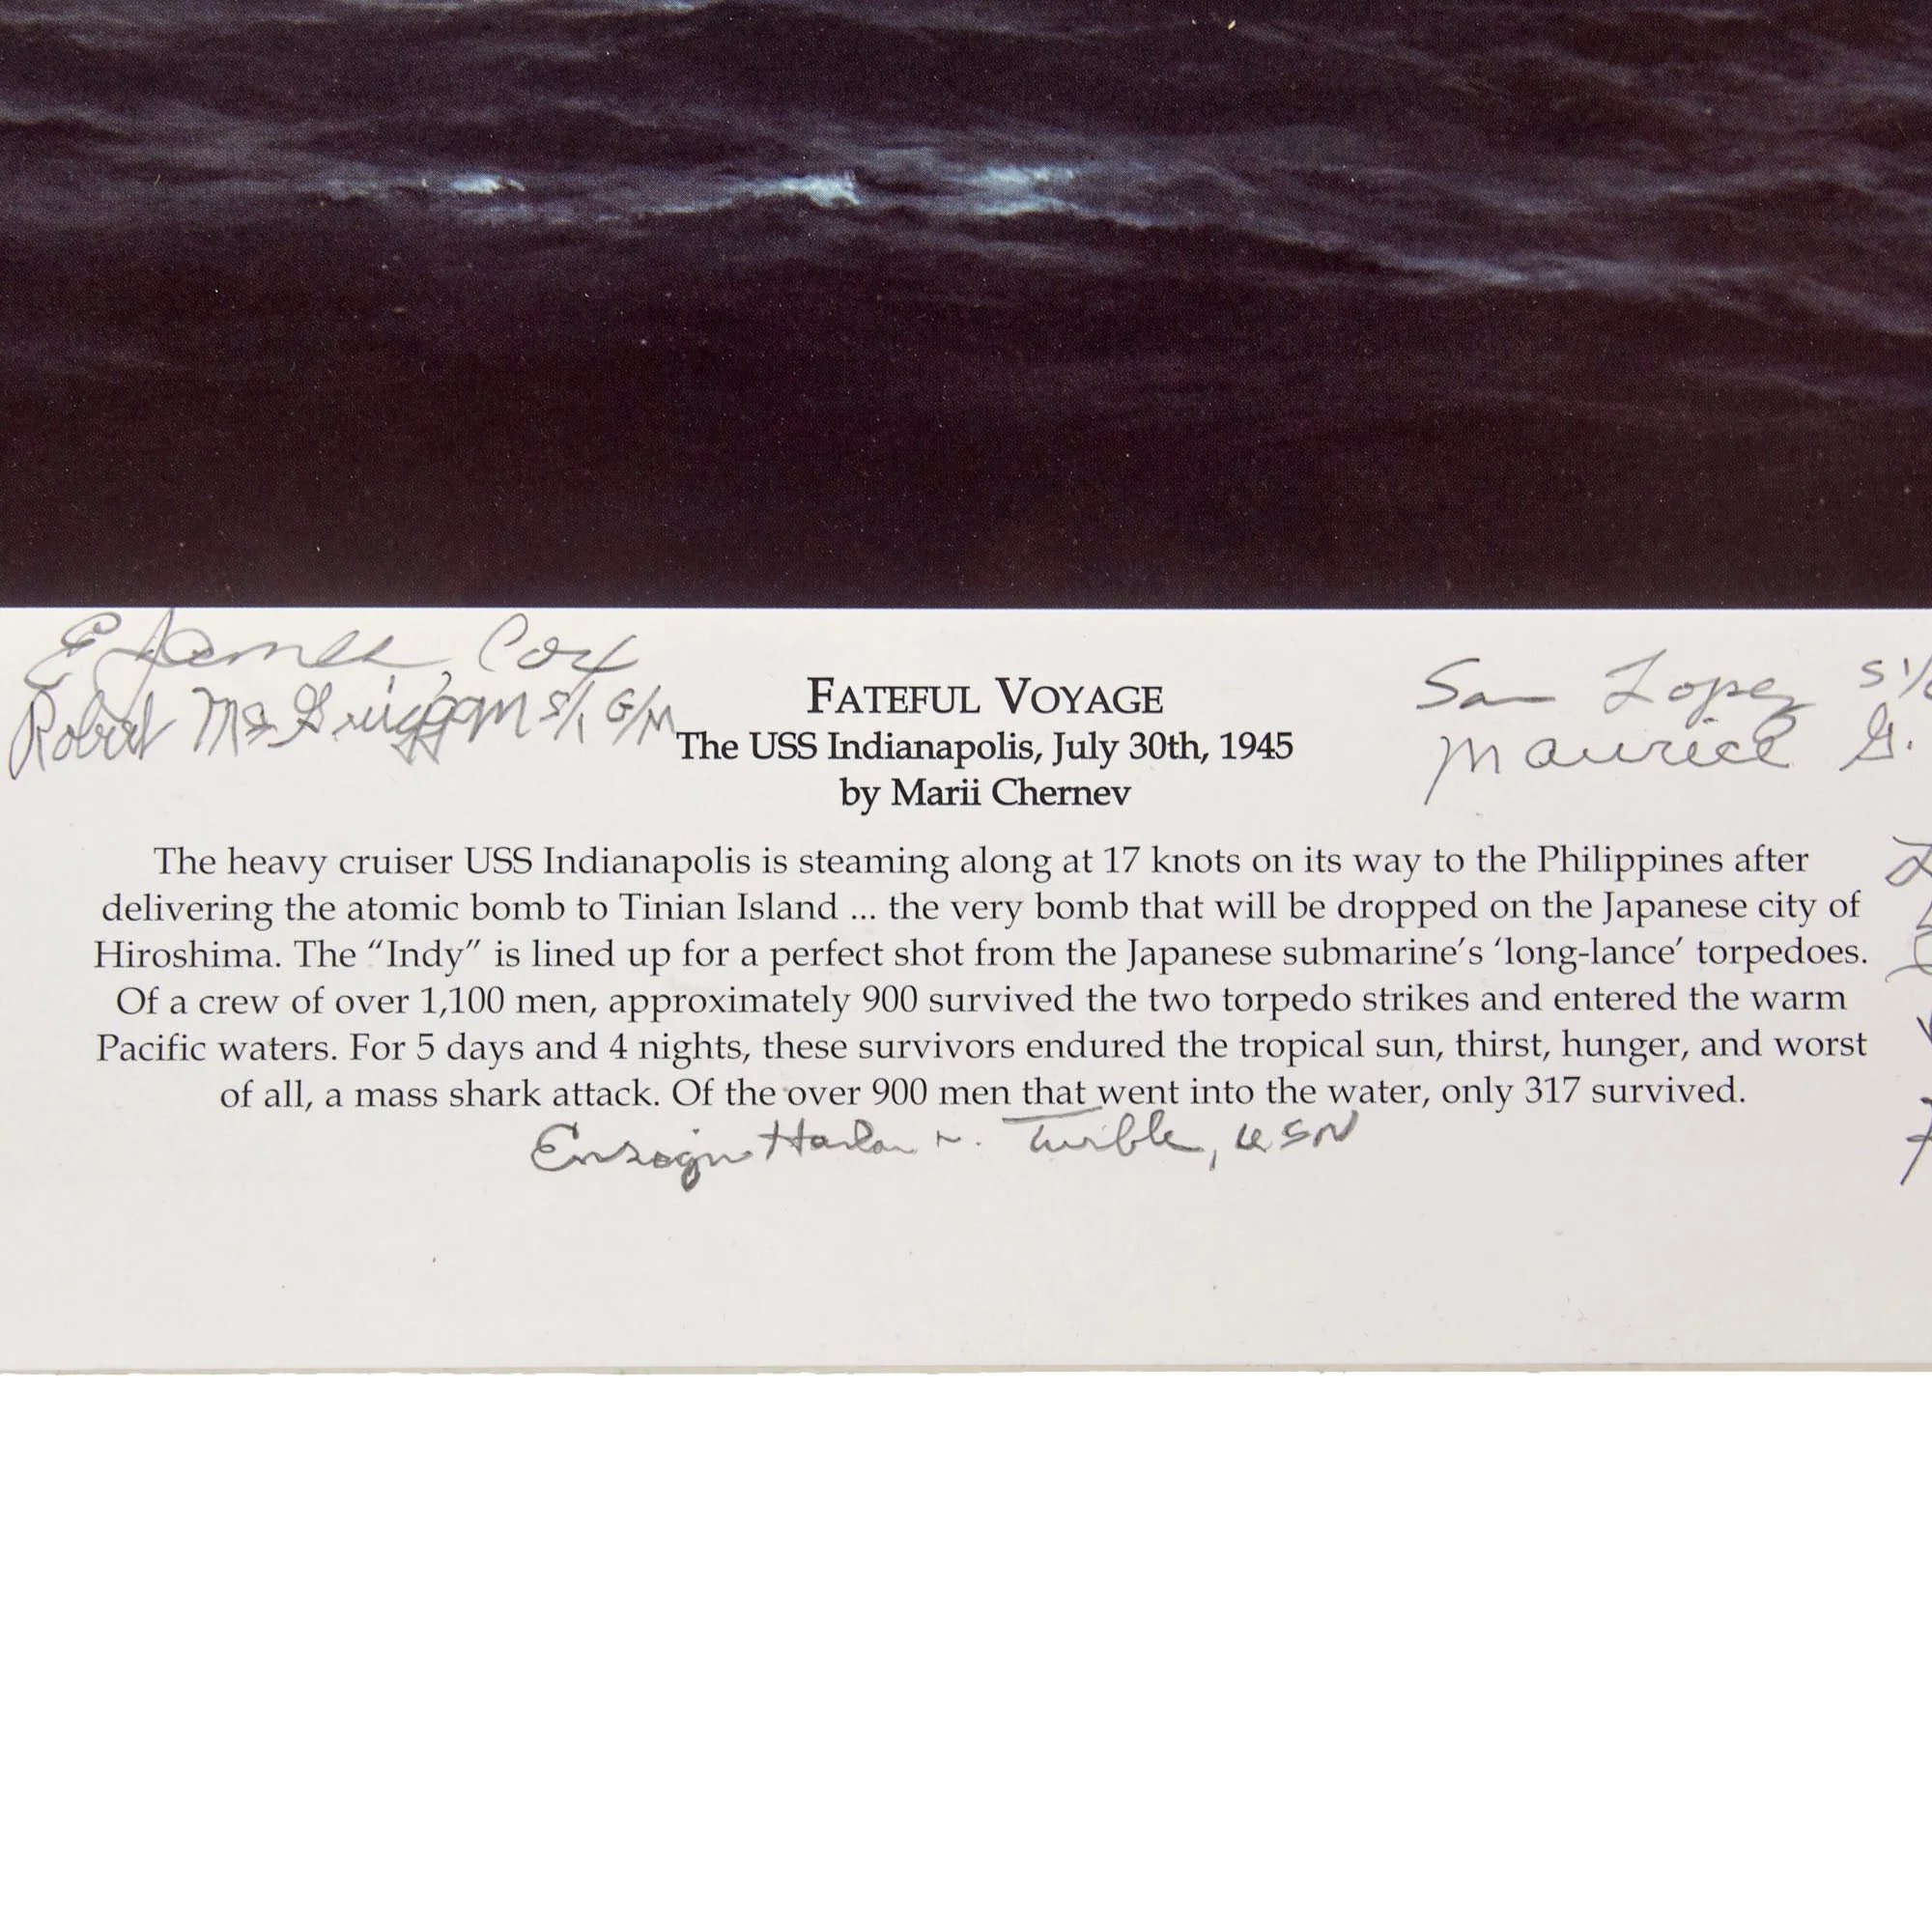 E James Cox
Robert McGuiggan S/1 G/M
Sam Lopez S 1/
Maurice G.
FATEFUL VOYAGE
The USS Indianapolis, July 30th, 1945
by Marii Chernev
The heavy cruiser USS Indianapolis is steaming along at 17 knots on its way to the Philippines after
delivering the atomic bomb to Tinian Island ... the very bomb that will be dropped on the Japanese city of
Hiroshima. The “Indy” is lined up for a perfect shot from the Japanese submarine’s ‘long-lance’ torpedoes.
Of a crew of over 1,100 men, approximately 900 survived the two torpedo strikes and entered the warm
Pacific waters. For 5 days and 4 nights, these survivors endured the tropical sun, thirst, hunger, and worst
of all, a mass shark attack. Of the over 900 men that went into the water, only 317 survived.
Ensign Harlan M. Twible, USN